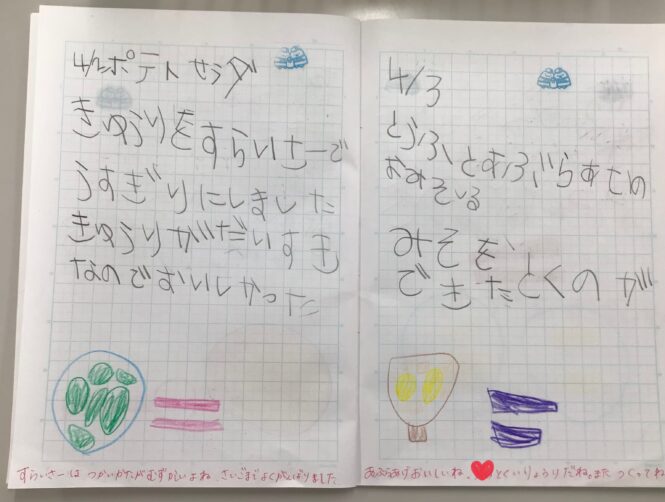 4/2ポテトサラダ
きゅうりをすらいさーで
うすぎりにしました
きゅうりがだいすき
なのでおいしかった
すらいさーは つかいかたがむずかしいよね さいごまでよくがんばりました
4/3
とうふとあぶらあげの
おみそしる
みそを、とくのが
できた
あぶらあげおいしいね。とくいりょうりだね。また つくってね